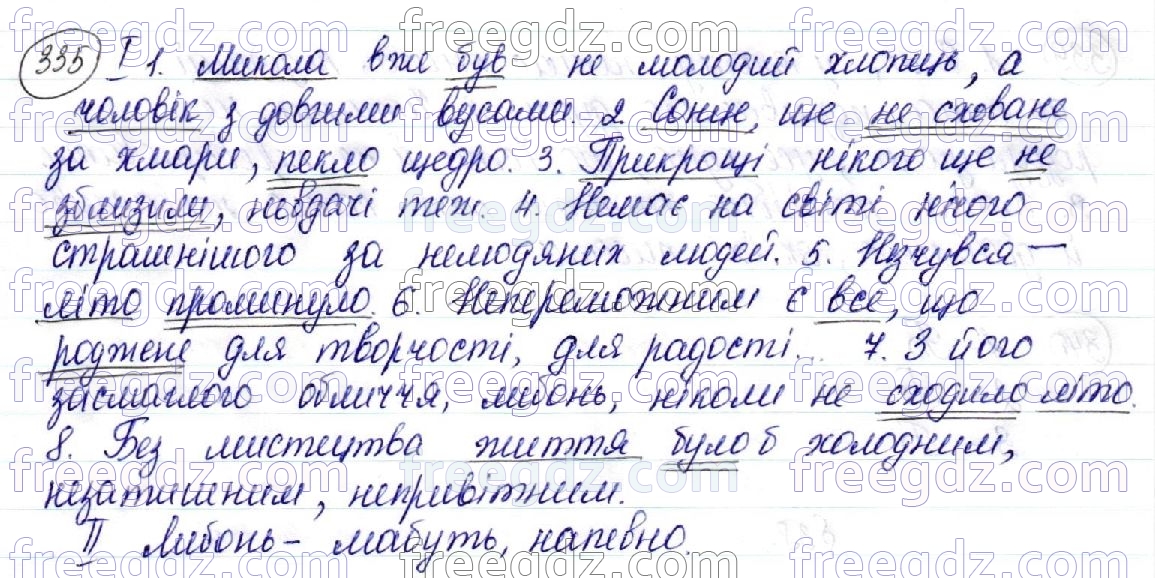 335 I 1. Микола вже був не молодий хлопець, а
чоловік з довгими вусами 2 Сонце, ще не сховане
за хмари, пекло щедро. 3. Прикрощі нікого ще не
зблизили, невдачі теж. 4. Немає на світі нічого
страшнішого за немодяних людей. 5. Незчувся —
літо проминуло. 6. Непереможним є все, що
роджене для творчості, для радості... 7. З його
засмаглого обличчя, либонь, ніколи не сходило літо.
8. Без мистецтва життя було б холодним,
незатишним, непривітним.
II Либонь – мабуть, напевно.